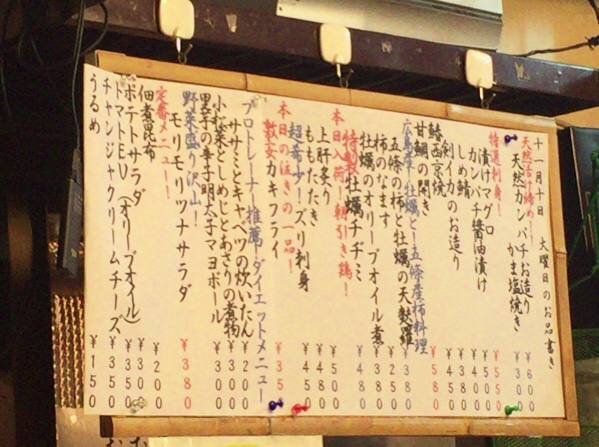 十一月十日 火曜日のお品書き
天然活け締め!
天然カンパチお造り ¥600
かま塩焼き ¥300
特選刺身! ¥550
漬けマグロ ¥500
カンパチ醤油漬け ¥480
しめ鯖 ¥450
剣イカのお造り ¥380
鰆西京焼 ¥580
甘鯛の開き
広島産牡蠣と五條産柿料理
五條の柿と牡蠣の天麩羅 ¥380
柿のなます ¥250
牡蠣のオリーブオイル煮 ¥350
特製牡蠣チヂミ ¥480
本日入荷 朝引き鶏!
上肝炙り ¥500
ももたたき ¥450
超希少!ズリ刺身 ¥480
本日の泣きの一品!
激安カキフライ ¥350
プロトレーナー推薦 ダイエットメニュー
ササミとキャベツの炊いたん ¥200
小松菜としめじとあさりの煮物 ¥300
里芋の辛子明太子マヨボール ¥300
野菜盛り沢山!
モリモリツナサラダ ¥380
定番メニュー!
佃煮昆布 ¥200
ポテトサラダ ¥300
トマトEV(オリーブオイル) ¥350
チャンジャクリームチーズ ¥350
うるめ ¥150